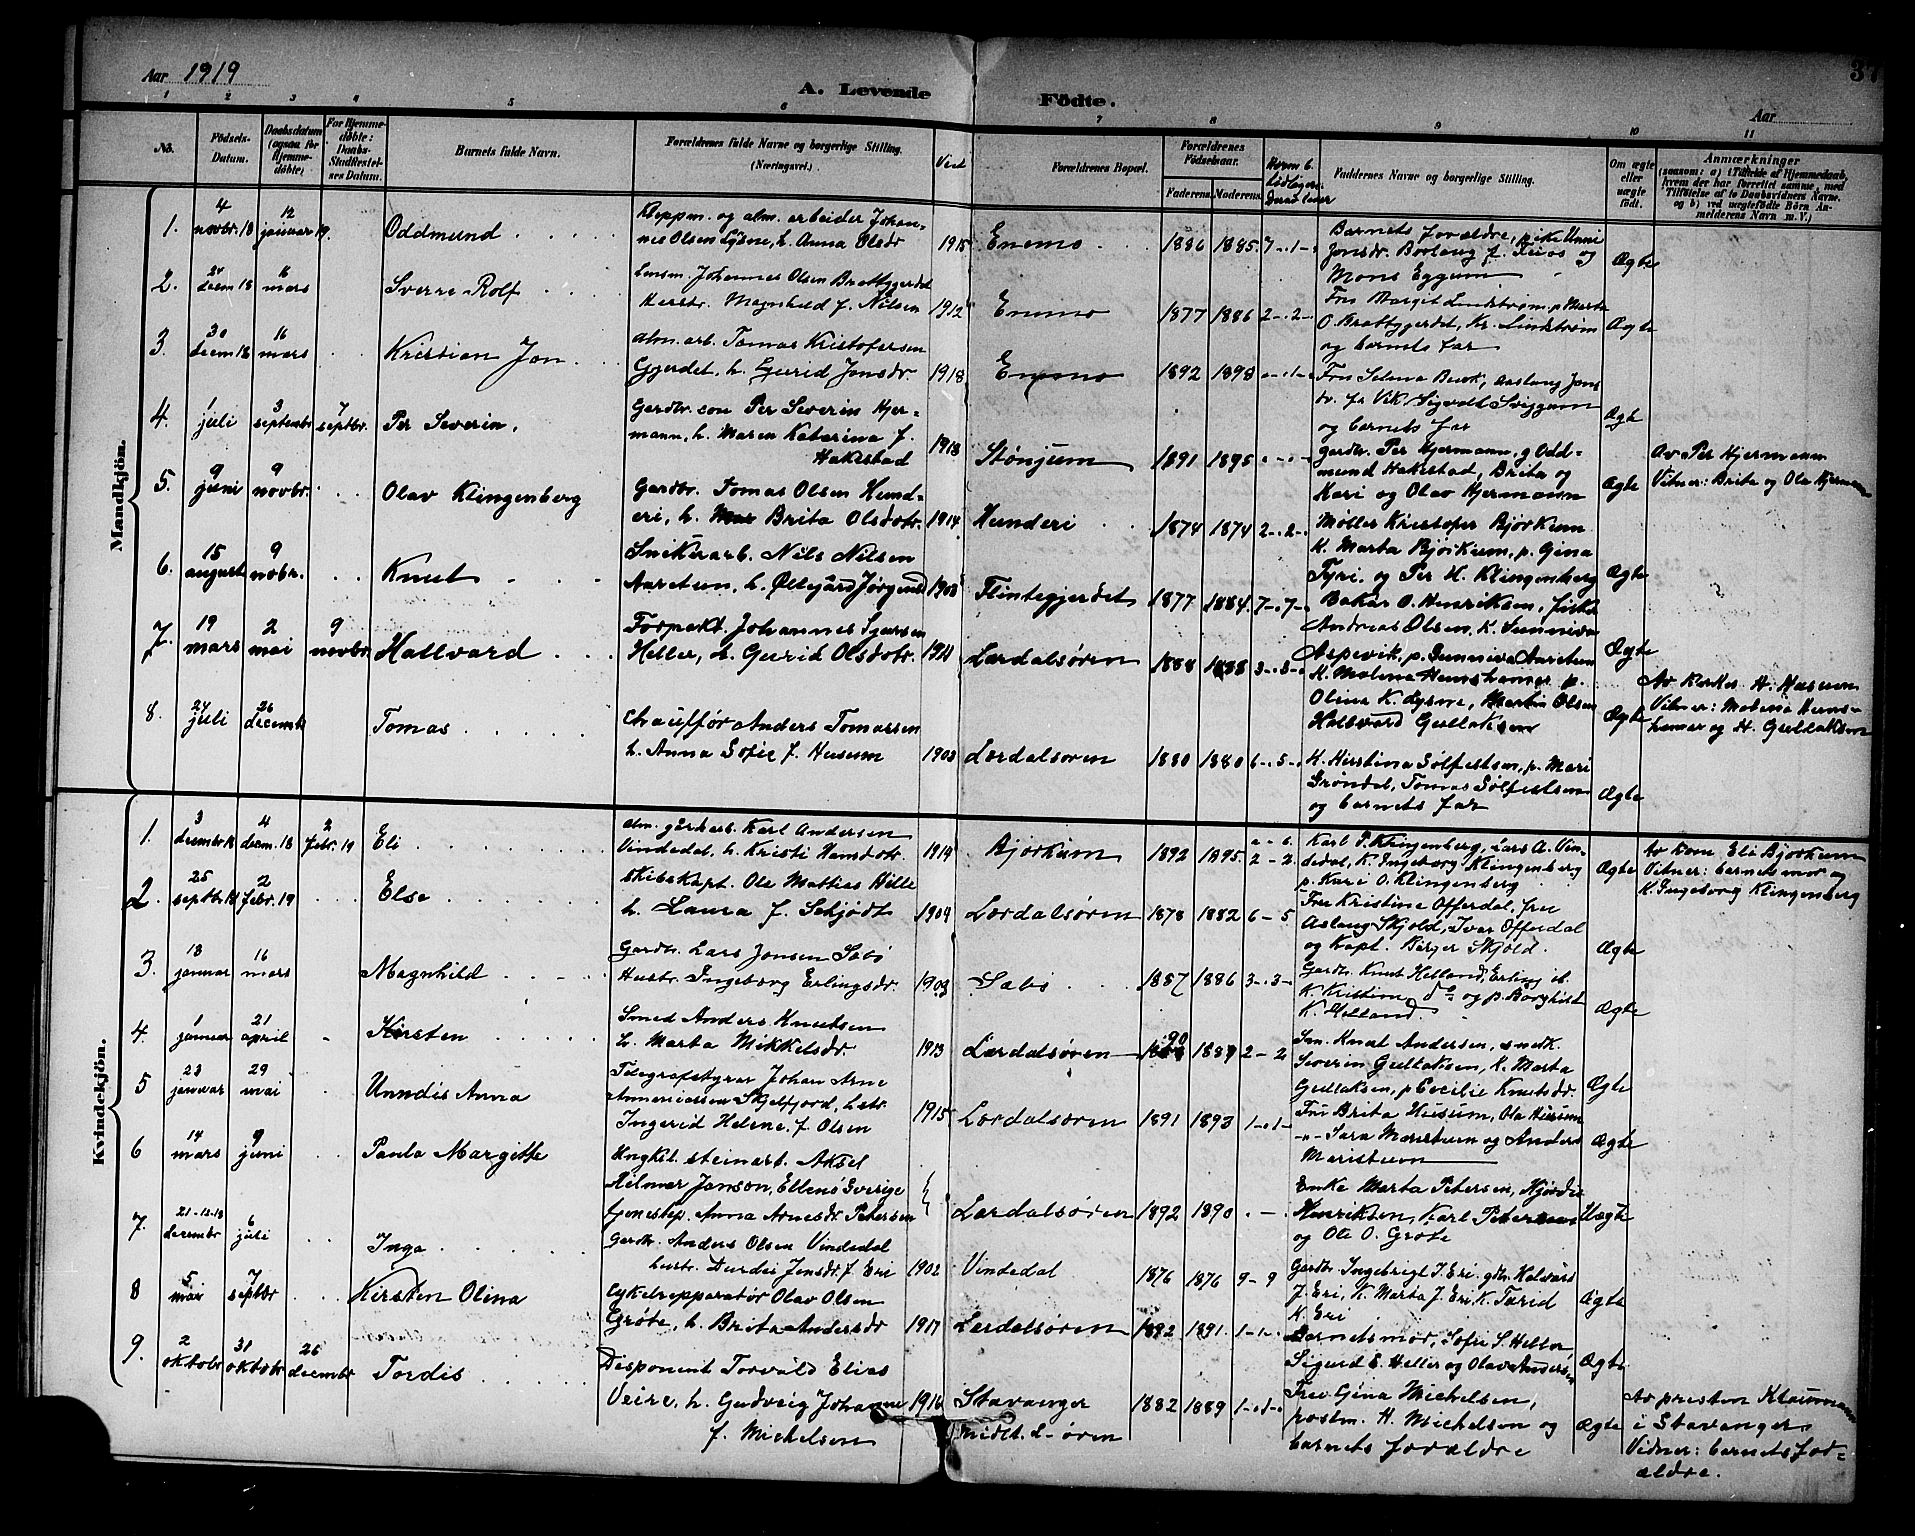 Aar 1919
A. Levende Födte.
Aar
37
1 2 3 4 5 6 7 8 9 10 11
No.
Födsels-Datum.
Daabsdatum (ogsaa for Hjemme-døbte)
For Hjemme-døbte: Daabs-Stadfæstel-ses Datum.
Barnets fulde Navn.
Forældrenes fulde Navne og borgerlige Stilling. (Næringsvei.)
Viet
Forældrenes Bopæl.
Forældrenes Födselsaar.
Faderens Moderens
Faddernes Navne og borgerlig Stilling.
Om ægte eller uægte født.
Anmærkninger
(saasom: a) i Tilfælde af Hjemmedaab, hvem der har forrettet samme, med Tilføielse af to Daabsvidners Navne, og b) ved uægtefødte Börn Anmelderens Navn m. V.)
Mandkjön.
1. 4 novbr. 18 12 januar 19. Oddmund
Reppm. og alm. arbeider Johan-
nes Olsen Lysne, h. Anna Olsdr 1915 Enemo 1886 1885 7-.1-.
Barnets forældre, pike Unni
Jonsdr. f. og
Mons Eggum Ægte
2. 24 decem 18 16 mars Sverre Rolf
Lensm. Johannes Olsen Brattegjerdet
Hustr. Magnhild f. Nilsen 1912 Enemo 1877 1886 2-.2-.
Fru Margit Lindstrøm, p. Marta
O. Brattgjerdet, Kr. Lindstrøm
og barnets far Ægte
3. 30 decem 18 16 mars Kristian Jon
alm. arb. Tomas Kristofersen
Gjerdet, h. Gurid Jonsdr. 1918 Enemo 1892 1898 -.1-
Fru Selma, Aaslaug Jons
dr. fr Vik, Sigvalt Sviggum
og barnets far Ægte
4. 1 juli 3 septembr 7 septbr. Per Severin,
Gardbr. son Per Severin Hjer-
mann, h. Maren Katarina f.
Hakestad 1918 Stønjum 1891 1895 -.-
gardbr. Per Hjermann, g Odd-
mund Hakestad, Brita og
Mari og Olav Hjermann Ægte
Av Per Hjermann
Vitner: Brita og Ola Hjermann
5. 9 juni 9 novbr. Olav Klingenberg
Gardbr. Tomas Olsen Hund-
eri, h. Brita Olsdotr. 1914 Hunderi 1874 1874 2-.2-.
Møller Kristofer Bjørkum
K. Marta Bjørkum, p. Gina
Tyri, og Per H. Klingenberg Ægte
6. 15 august 9 nobr. Knut
Snikerarb. Nils Nilsen
Aaretun, h. Øllegård Jørgensd 1908 Flintegjerdet 1877 1884. 7-.7-.
Bakar O. Henriksen,
Andreas Olsen, K. Sunniva
Aspevik, p. Sunniva Aaretun Ægte
7. 19 mars 2 mai 9 novbr. Hallvard
Forpakt. Johannes Sjursen
Heller, h. Gurid Olsdotr. 1911 Lærdalsøren 1884 1888 3-.3-.
K. Malena Hemshamar p.
Olina K. Lysne, Martin Olsen
Hallvard Gullaksen Ægte
Av H. Husum
Vitner: Malena Hems-
hamar og H. Gullaksen
8. 24 juli 26 decembr Tomas
Chaufför Anders Tomassen
h. Anna Sofie f. Husum 1903 Lærdalsøren 1880 1880 6-.5-.
K. Kirstina Sølfestsen, p. Mari
Grøndal, Tomas Sølfestsen
og barnets far Ægte
Kvindekjön.
1. 3 decembr 4 decm. 18 2 febr. 19 Eli
alm. gårdarb. Karl Andersen
Vindedal, h. Kristi Hansdotr. 1914 Bjørkum 1892 1895. 2-2
Karl P. Klingenberg, Lars A. Vin-
dedal, K. Ingeborg Klingenberg
p. Kari O. Klingenberg Ægte
Av Kone Eli Bjørkum
Vitner: barnets mor og
K. Ingeborg Klingenberg
2. 25 septbr. 2 febr. 19 Else
Skibskapt. Ole Mattias Hille
h. Laura f. Schjødt 1904 Lærdalsøren 1878 1882 6-5
Fru Kristine Offerdal, fru
Aslaug Skjold, Ivar Offerdal
og Kapt. Birger Skjold. Ægte
3. 18 januar 16 mars Magnhild
Gardbr. Lars Jonsen Sæbø
Hustr. Ingeborg Erlingsdr. 1908 Sæbø 1887 1886 3-.3-
Gardbr. Knut Helland, Erling
K. Kristine do og p. Borghild
K. Helland Ægte
4. 1 januar 21 april Kirsten
Smed Anders Knutsen
h. Marta Mikkelsdr. 1913 Lærdalsøren 90 1887 2-2
Sm. Knut Andersen, snedk.
Severin Gullaksen, K. Marta
Gullaksen, p Cecilie Knutsdr. Ægte
5 23 januar 29 mai Unndis Anna
Telegrafstyrar Johan Arne
Annaniassen Skjelfjord, hustr.
Ingerid Helene f. Olsen 1915 Lærdalsøren 1891 1893 1-.1-
Fru Brita Husum, Ola Husum
-"- Sara Maristuen og Anders
Maristuen Ægte
6 14 mars 9 juni Paula Margitte
Ungkal. steinarb. Aksel
Hilmar Janson, Ellenö Sverige
tjenestep. Anna Arnesdr. Petersen Lærdalsøren 1892 1890 .-.
Enke Marta Petersen, Hjördis
Henriksen, Karl Petersen
og Ole O. Grøte Uægte
7. 21-12-18 decembr 6 juli Inga
Gardbr. Anders Olsen Vindedal
hustr. Durdei Jensdr. f. Eri 1902 Vindedal 1876 1876 9-9
Gardbr. Ingebrigt J. Eri, gbr. Halvard
J. Eri, K. Marta J. Eri K. Turid
K. Eri Ægte
8 5 mai 7 septbr Kirsten Olina
Cykelreparatør Olav Olsen
Grøte, h. Brita Andersdr 1917 Lærdalsøren 1892 1891. 1-.1-.
Barnets mor, Sofie S. Heller,
Sigurd E. Heller og Olav Andersen Ægte
9. 2 oktobr 31 oktobr 26 decembr Tordis
Disponent Torvald Elias
Veire, h. Gudveig Johanne
f. Michelsen 1916 Stavanger
midt. L-øren 1882 1889 1-.1-.
Frøv Gina Michelsen,
postm. H. Michelsen og
barnets forældre Ægte
Av presten Klaumann
i Stavanger
Vidner: barnets for-
ældre.